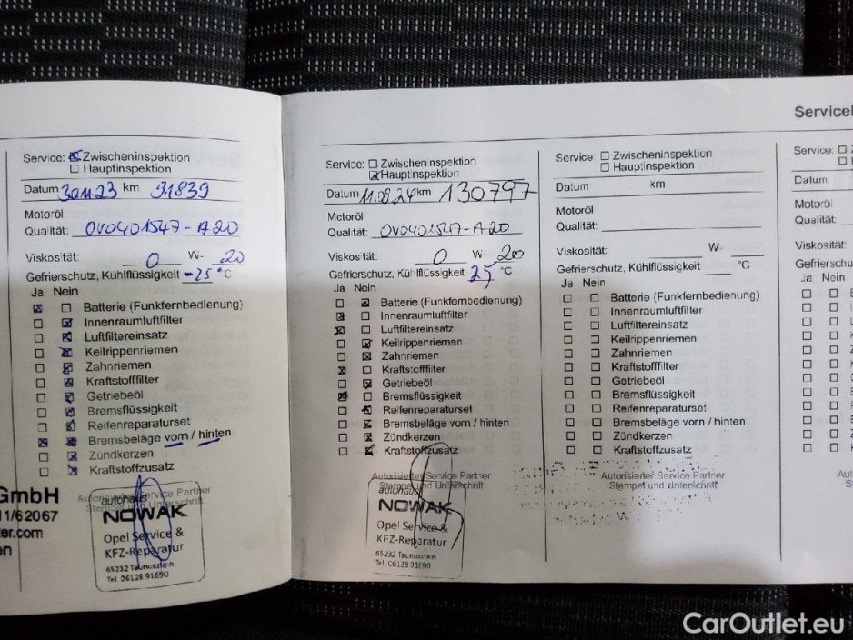 Service: Zwischeninspektion
Hauptinspektion
Datum km 91839
Motoröl
Qualität: OV0401547-A20
Viskosität: 0 W- 20
Gefrierschutz, Kühlflüssigkeit -25 °C
Ja Nein
Batterie (Funkfernbedienung)
Innenraumluftfilter
Luftfiltereinsatz
Keilrippenriemen
Zahnriemen
Kraftstofffilter
Getriebeöl
Bremsflüssigkeit
Reifenreparaturset
Bremsbeläge vorn / hinten
Zündkerzen
Kraftstoffzusatz
Autorisierter Service Partner
autohaus
NOWAK
Opel Service &
KFZ-Reparatur
65232 Taunusstein
Tel. 06128 91690
GmbH
11/62067
ter.com
en
Service: Zwischeninspektion
Hauptinspektion
Datum 11.09.24 km 130797
Motoröl
Qualität: OV0401547-A20
Viskosität: 0 W- 20
Gefrierschutz, Kühlflüssigkeit 25 °C
Ja Nein
Batterie (Funkfernbedienung)
Innenraumluftfilter
Luftfiltereinsatz
Keilrippenriemen
Zahnriemen
Kraftstofffilter
Getriebeöl
Bremsflüssigkeit
Reifenreparaturset
Bremsbeläge vorn / hinten
Zündkerzen
Kraftstoffzusatz
Autorisierter Service Partner
Stempel und Unterschrift
autohaus
NOWAK
Opel Service &
KFZ-Reparatur
65232 Taunusstein
Tel. 06128 91690
Service: Zwischeninspektion
Hauptinspektion
Datum km
Motoröl
Qualität:
Viskosität: W-
Gefrierschutz, Kühlflüssigkeit °C
Ja Nein
Batterie (Funkfernbedienung)
Innenraumluftfilter
Luftfiltereinsatz
Keilrippenriemen
Zahnriemen
Kraftstofffilter
Getriebeöl
Bremsflüssigkeit
Reifenreparaturset
Bremsbeläge vorn / hinten
Zündkerzen
Kraftstoffzusatz
Autorisierter Service Partner
Stempel und Unterschrift
Service
Service:
Datum
Motoröl
Qualität:
Viskosität:
Gefrierschu
Ja Nein
CarOutlet.eu